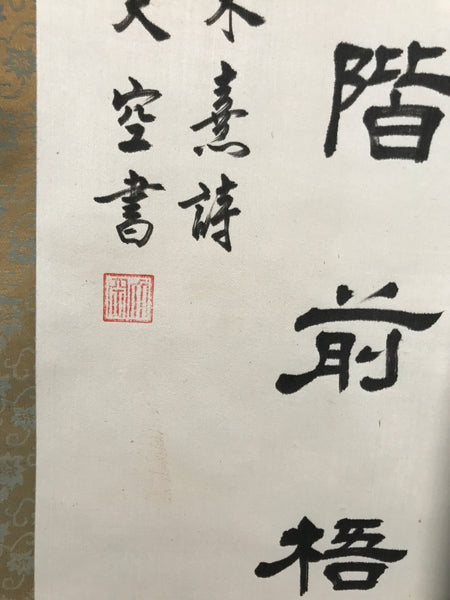 階前梧
朱熹詩
空書